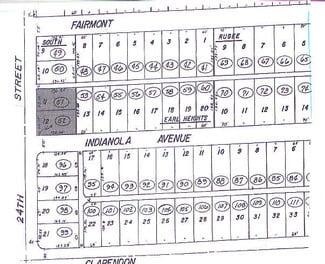 FAIRMONT
SOUTH
RUBEE
8 7 6 5 4 3 2 1 9 8 7 6 5
9 49
10 50
48 47 46 45 44 43 42 41 69 68 67 66 65
STREET
51
12 52
53 54 55 56 57 58 59 60 70 71 72 73 74
13 14 15 16 17 18 19 20 10 11 12 13 14
EARL HEIGHTS
INDIANOLA AVENUE
17 16 15 14 13 12 11 10 9 8 7 6
18 96
95 94 93 92 91 90 89 88 87 86 85 84
19 97
24TH
20 98
100 101 102 103 104 105 106 107 108 109 110 111
22 23 24 25 26 27 28 29 30 31 32 33
21 99
CLARENDON